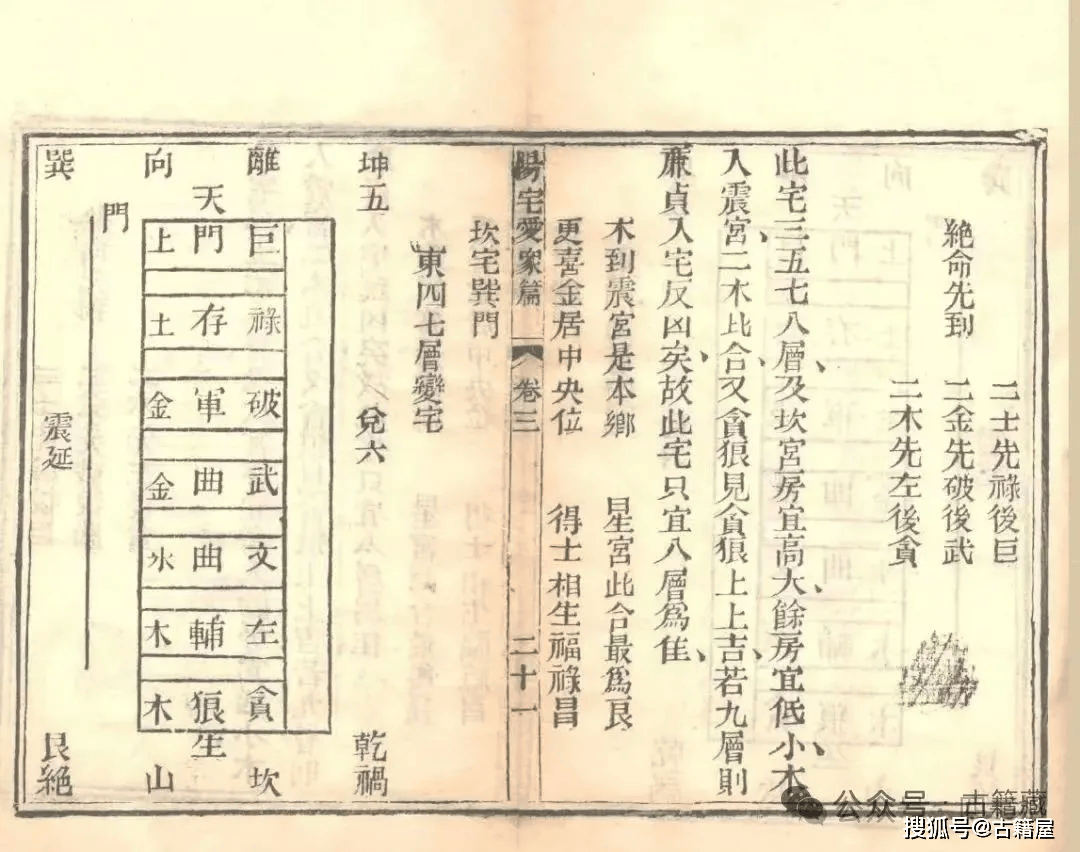 絶命先到
二土先祿後巨
二金先破後武
二木先左後貪
此宅三五七八層及坎宮房宜高大、餘房宜低小、木
入震宮、二木比合、又貪狼見貪狼上上吉、若九層則
廉貞入宅反凶矣、故此宅只宜八層為佳、
木到震宮是本鄉
星宮此合最為良
更喜金居中央位
得土相生福祿昌
陽宅愛衆篇
卷三
二十一
坎宅巽門
東四七層變宅
坤五
兌六
乾禍
離
向
巽
天
門
巨門土
祿存土
破軍金
武曲金
文曲水
左輔木
貪狼木
生
震延
坎
山
艮絕
公众号·古籍藏
搜狐号@古籍屋